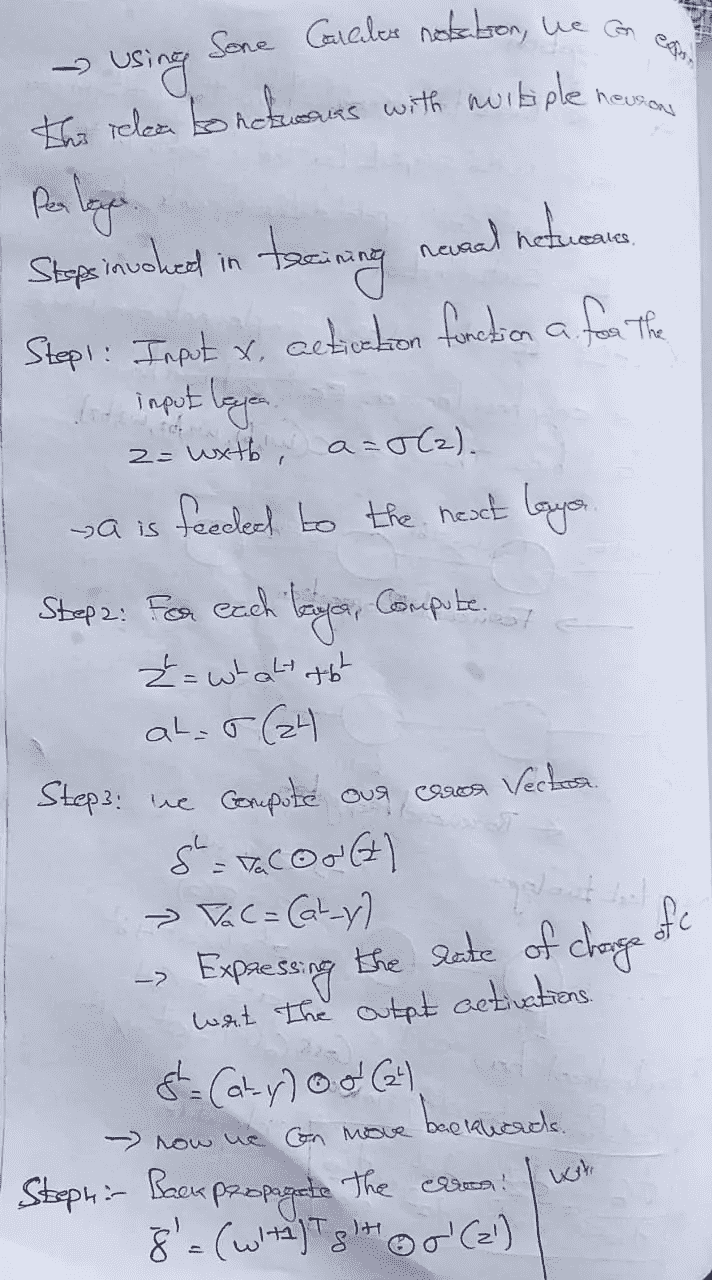 → using Some Calculus notation, we can
this idea to networks with multiple neurons
Per layer.
Steps involved in training neural networks.
Step1: Input x, activation function a for the
input layer.
z = wx+b , a = σ(z).
→ a is feeded to the next layer.
Step2: For each layer, Compute.
z^L = w^L a^{L-1} + b^L
a^L = σ(z^L)
Step3: we Compute our error Vector.
δ^L = ∇aC ⊙ σ'(z^L)
→ ∇aC = (a^L-y)
→ Expressing the rate of change of C
w.r.t the outpt activations.
δ^L = (a^L-y) ⊙ σ'(z^L)
→ now we Can move backwards.
Step4:- Back propagate the error:
δ^l = (w^{l+1})^T δ^{l+1} ⊙ σ'(z^l)